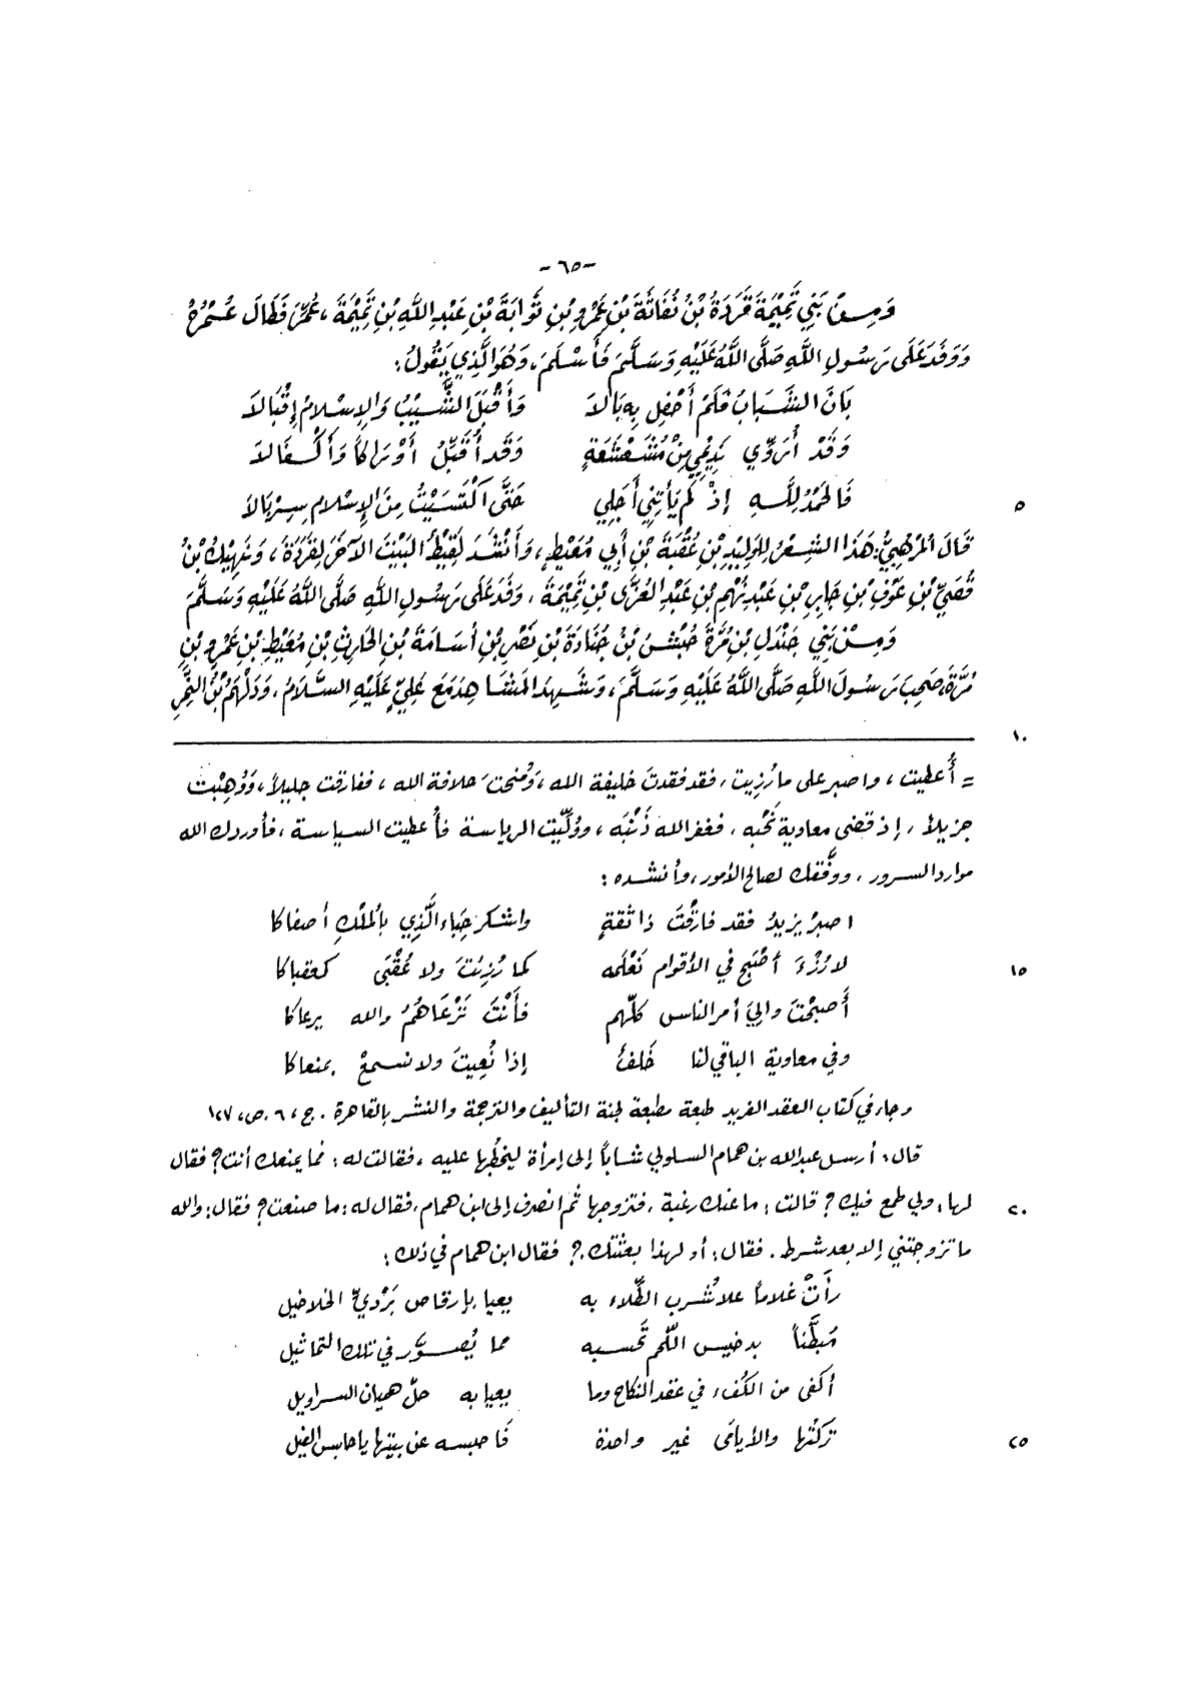 -٦٥-
وَمِنْ بَنِي تَمِيْمَةَ قَرَدَةُ بْنُ نُفَاثَةَ بْنِ عَمْرِو بْنِ ثَوَابَةَ بْنِ عَبْدِ اللَّهِ بْنِ تَمِيْمَةَ، عُمِّرَ فَطَالَ عُمْرُهُ
وَوَفَدَ عَلَى رَسُولِ اللَّهِ صَلَّى اللَّهُ عَلَيْهِ وَسَلَّمَ فَأَسْلَمَ، وَهُوَ الَّذِي يَقُولُ:
بَانَ الشَّبَابُ فَلَمْ أَحْفِلْ بِهِ بَالاَ وَأَقْبَلَ الشَّيْبُ وَالإِسْلامُ إِقْبَالاَ
وَقَدْ أُرَوِّي نَدِيْمِي مِنْ مُشَعْشَعَةٍ وَقَد أُقَبِّلُ أَوْرَاكاً وَأَكْفَالاَ
فَالحَمْدُ لِلَّهِ إِذْ لَمْ يَأتِنِي أَجَلِي حَتَّى اكْتَسَيْتُ مِنَ الإِسْلامِ سِرْبَالاَ
٥
قَالَ المُرْهِبِيُّ: هَذَا الشِّعْرُ لِلوَلِيْدِ بْنِ عُقْبَةَ بْنِ أَبِي مُعَيْطٍ، وَأَنْشَدَ لَقِيْطُ البَيْتَ الآخَرَ لِقَرَدَةَ، وَنَهِيْكُ بْنُ
قُصَيِّ بْنِ عَوْفِ بْنِ جَابِرِ بْنِ عَبْدِ نُهْمِ بْنِ عَبْدِ العُزَّى بْنِ تَمِيْمَةَ، وَفَدَ عَلَى رَسُولِ اللَّهِ صَلَّى اللَّهُ عَلَيْهِ وَسَلَّمَ
وَمِنْ بَنِي جَنْدَلِ بْنِ مُرَّةَ حُبْشِيُّ بْنُ جُنَادَةَ بْنِ نَصْرِ بْنِ أُسَامَةَ بْنِ الحَارِثِ بْنِ مُعَيْطِ بْنِ عَمْرِو بْنِ
مُرَّةَ، صَحِبَ رَسُولَ اللَّهِ صَلَّى اللَّهُ عَلَيْهِ وَسَلَّمَ، وَشَهِدَ المَشَاهِدَ مَعَ عَلِيٍّ عَلَيْهِ السَّلامُ، وَدَلْهَمُ بْنُ النَّمِرِ
١٠
= أُعطيت، واصبر على ما رُزِيت، فقد فقدتَ خليفة الله، وَمُنحتَ خلافة الله، ففارقت جليلاً، وَوُهِبْت
جزيلاً، إذ قضى معاوية نَحْبَه، فغفر الله ذَنْبَه، ووُلِّيت الرياسة فأُعطيت السياسة، فأوردك الله
موارد السرور، ووفَّقك لصالح الأمور، وأنشده:
اصبرْ يزيدُ فقد فارقْتَ ذا ثقةٍ واشكر حِبَاءَ الَّذِي بالمُلْكِ أصفاكا
لا رُزْءَ أصْبَحَ في الأقوام نَعْلَمه كما رُزِئتَ ولا عُقْبَى كعقباكا
١٥
أَصبحْتَ واليَ أمر الناس كلِّهم فأَنْتَ تَرْعَاهُمُ والله يرعاكا
وفي معاوية الباقي لنا خَلفٌ إذا نُعِيتَ ولا نسمعْ بمنعاكا
وجاء في كتاب العقد الفريد طبعة مطبعة لجنة التأليف والترجمة والنشر بالقاهرة. ج، ٦.ص، ١٢٧
قال: أرسل عبد الله بن همام السلولي شاباً إلى إمرأة ليخطُبها عليه، فقالت له: فما يمنعك أنت؟ فقال
لها: ولي طمع فيك؟ قالت: ما عنك رغبة، فتزوجها ثُم انصرف إلى ابن همام، فقال له: ما صنعت؟ فقال: والله
٢٠
ما تزوجتني إلا بعد شرط. فقال: أو لهذا بعثتك.؟ فقال ابن همام في ذلك:
رأتْ غلاماً علا شُرب الطِّلاء به يعيا بإرقاص بَرْديّ الخلاخيل
مُبطَّناً بدخيس اللّحم تَحسبه مما يُصوَّر في تلك التماثيل
أكفى من الكُفء في عقد النكاح وما يعيا به حلّ هميان السراويل
تركتُها والأيامَى غير واحدة فَاحبسه عن بيتها يا حابس الفيل
٢٥